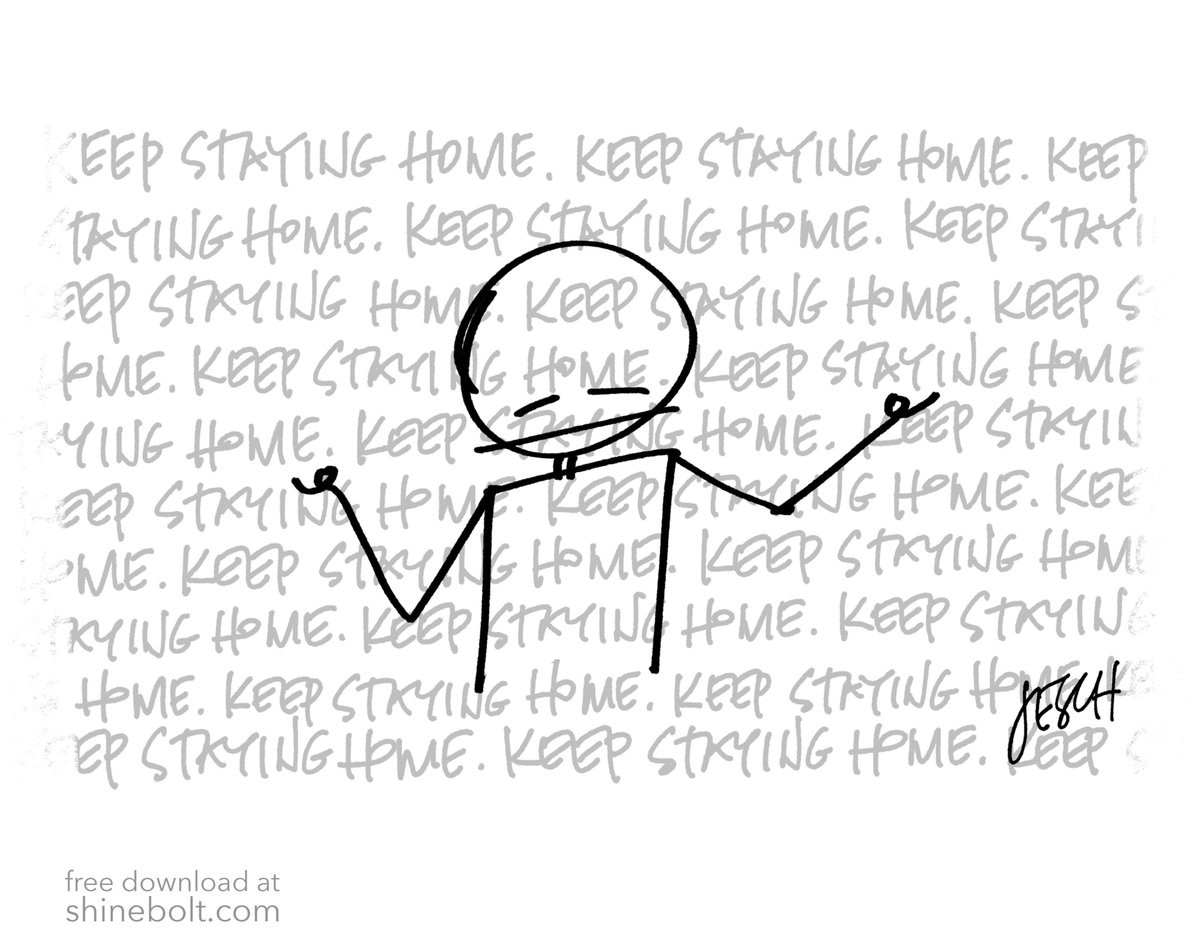 KEEP STAYING HOME. KEEP STAYING HOME. KEEP
STAYING HOME. KEEP STAYING HOME. KEEP STAYI
EEP STAYING HOME. KEEP STAYING HOME. KEEP S
HOME. KEEP STAYING HOME. KEEP STAYING HOME
YING HOME. KEEP STAYING HOME. KEEP STAYIN
EEP STAYING HOME. KEEP STAYING HOME. KEE
OME. KEEP STAYING HOME. KEEP STAYING HOM
TAYING HOME. KEEP STAYING HOME. KEEP STAYING
HOME. KEEP STAYING HOME. KEEP STAYING HOME. KE
EP STAYING HOME. KEEP STAYING HOME. KEEP S
JESCH
free download at
shinebolt.com